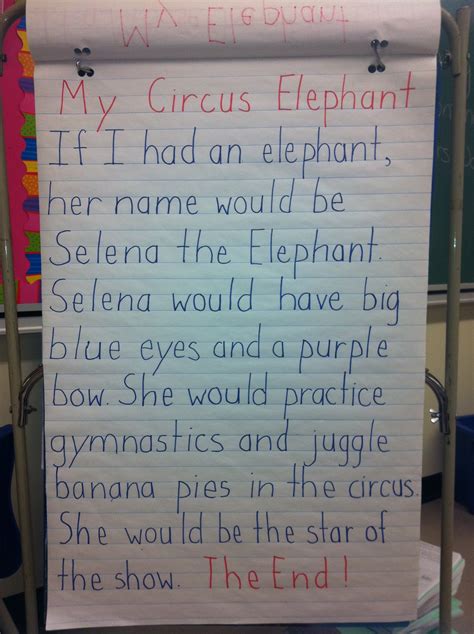 My Elephant
My Circus Elephant
If I had an elephant,
her name would be
Selena the Elephant.
Selena would have big
blue eyes and a purple
bow. She would practice
gymnastics and juggle
banana pies in the circus.
She would be the star of
the show. The End!